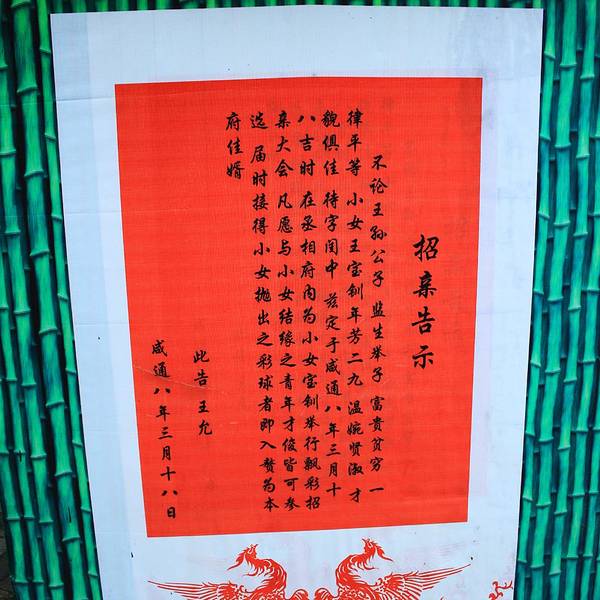 招亲告示
不论王孙公子 监生举子 富贵贫穷 一
律平等 小女王宝钏年芳二九 温婉贤淑 才
貌俱佳 待字闺中 兹定于咸通八年三月十
八吉时 在丞相府内为小女宝钏举行飘彩招
亲大会 凡愿与小女结缘之青年才俊皆可参
选 届时接得小女抛出之彩球者即入赘为本
府佳婿
此告 王允
咸通八年三月十八日